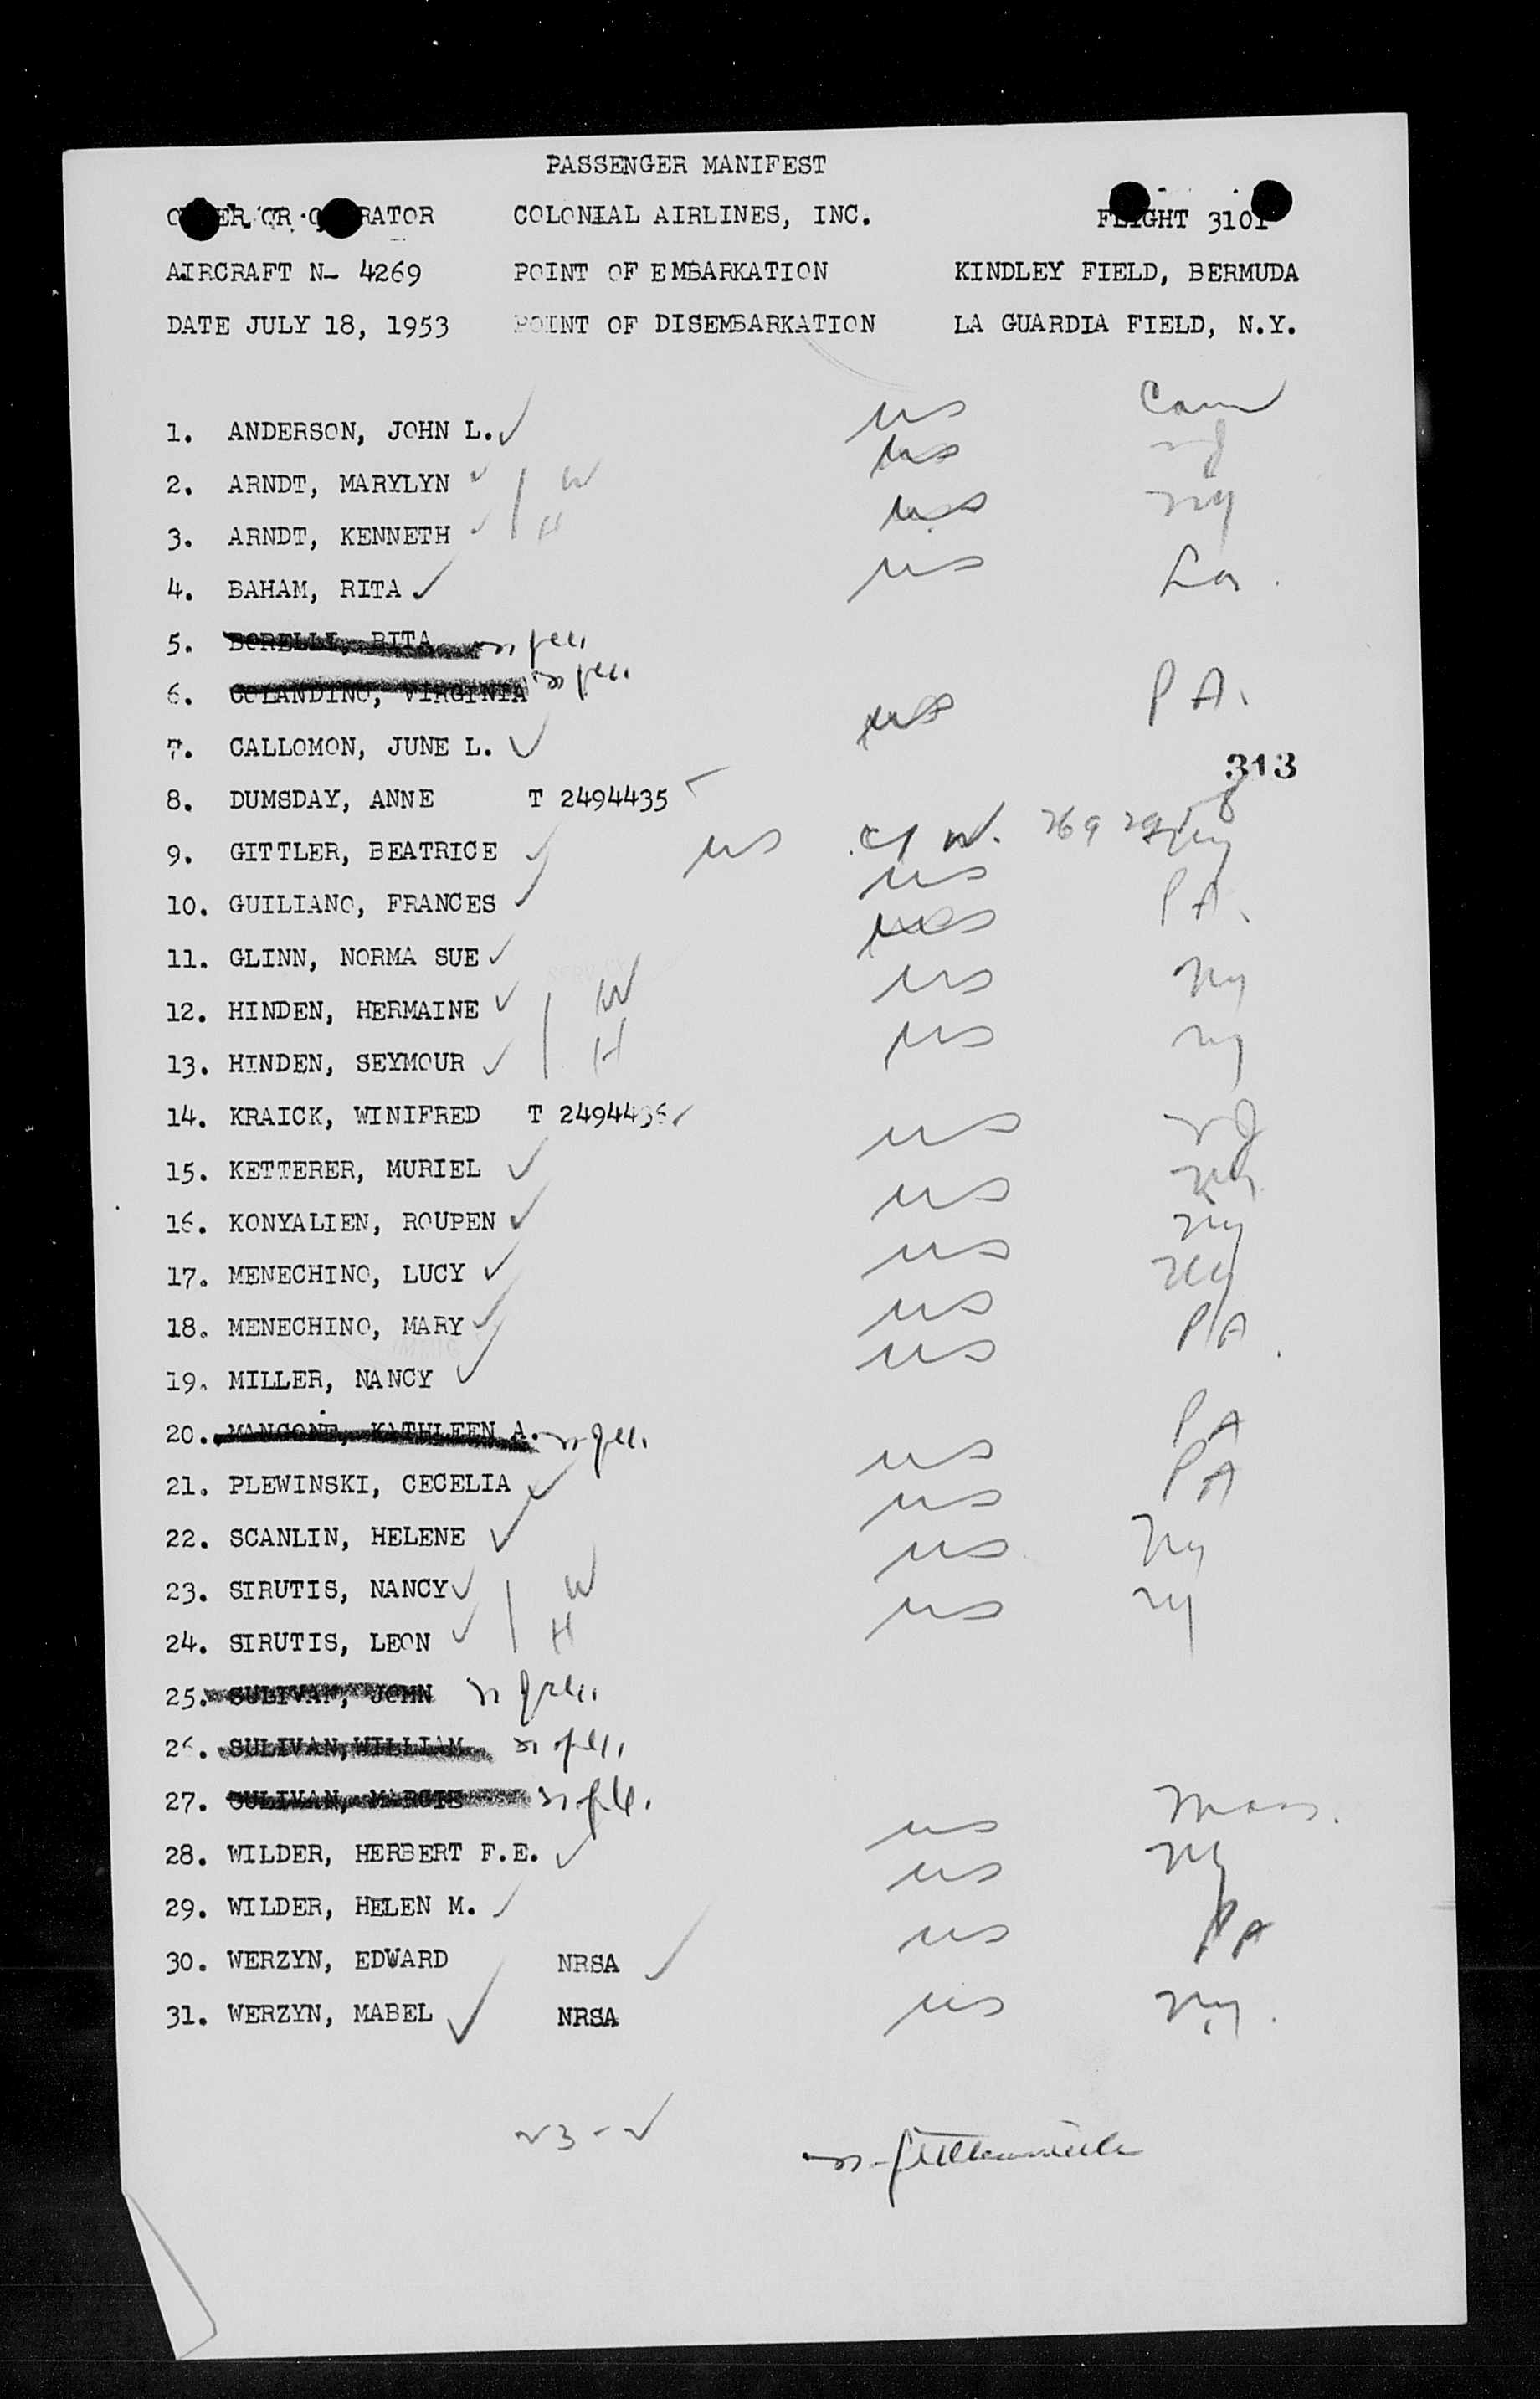 PASSENGER MANIFEST
COLONIAL AIRLINES, INC. FLIGHT 3101
AIRCRAFT N- 4269 POINT OF EMBARKATION KINDLEY FIELD, BERMUDA
DATE JULY 18, 1953 POINT OF DISEMBARKATION LA GUARDIA FIELD, N.Y.
1. ANDERSON, JOHN L. us
2. ARNDT, MARYLYN W us NJ
3. ARNDT, KENNETH H us NY
4. BAHAM, RITA us La.
5. BORELLI, RITA
6. COLANDINO, VIRGINIA
7. CALLOMON, JUNE L. us PA.
313
8. DUMSDAY, ANNE T 2494435
9. GITTLER, BEATRICE us
10. GUILIANO, FRANCES us
11. GLINN, NORMA SUE us PA.
12. HINDEN, HERMAINE W us Ny
13. HINDEN, SEYMOUR H us Ny
14. KRAICK, WINIFRED T 2494436
15. KETTERER, MURIEL us NJ
16. KONYALIEN, ROUPEN us Ny
17. MENECHINO, LUCY us Ny
18. MENECHINO, MARY us Ny
19. MILLER, NANCY us PA
20. MANGONE, KATHLEEN A.
21. PLEWINSKI, CECELIA us PA
22. SCANLIN, HELENE us PA
23. SIRUTIS, NANCY W us Ny
24. SIRUTIS, LEON H us Ny
25. SULIVAN, JOHN
26. SULIVAN, WILLIAM
27. SULIVAN, MARGIE
28. WILDER, HERBERT F.E. us Mass.
29. WILDER, HELEN M. us Ny
30. WERZYN, EDWARD NRSA us PA
31. WERZYN, MABEL NRSA us Ny.